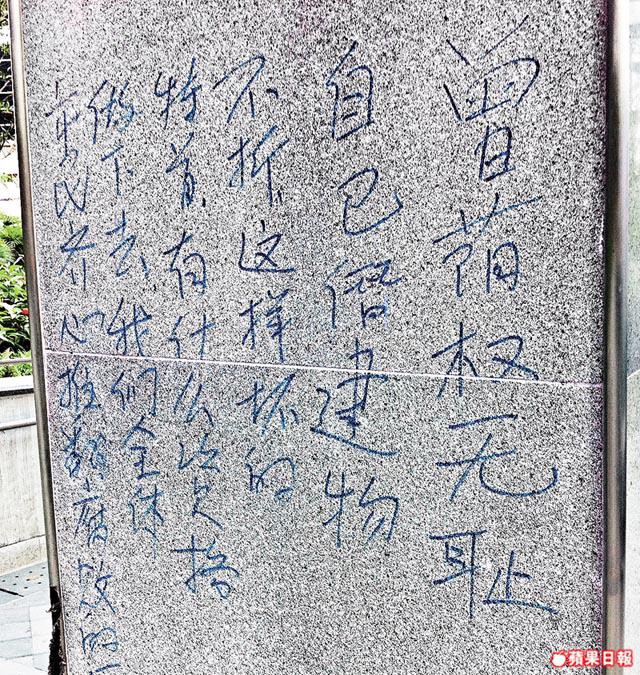 曾荫权无耻
自己僭建物
不拆这样坏的
特首有什么资格
做下去我们全体
市民齐心推翻腐败的
蘋果日報